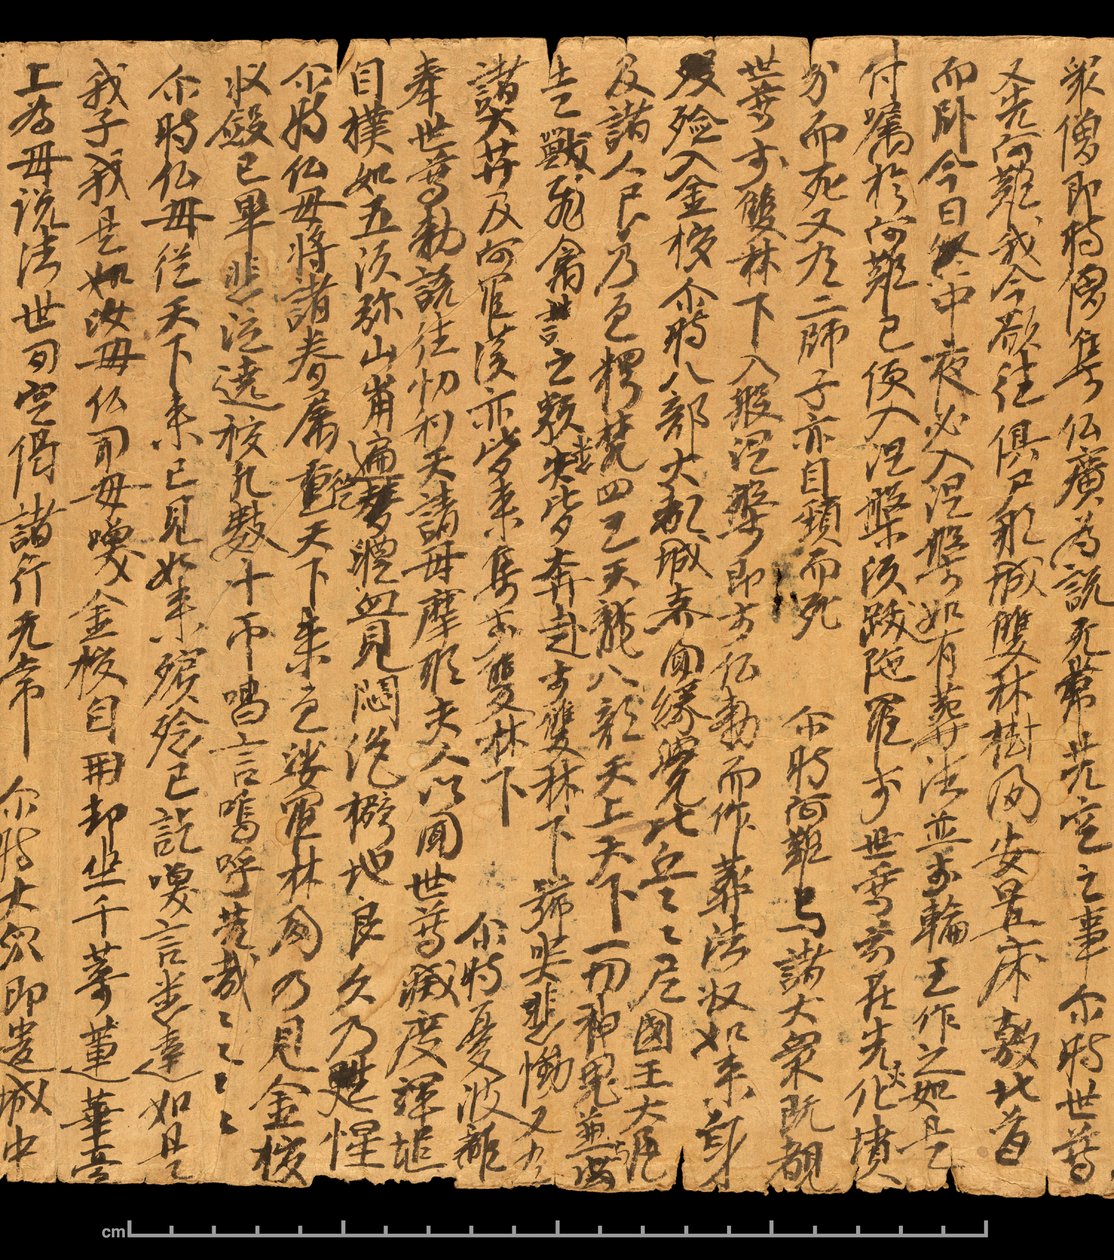 衆僧即時傳集仏廣為說无常苦空之事 尒時世尊
又告阿難我今欲往俱尸那城雙林樹間安置床敷北首
而臥今日中夜必入涅槃如有葬法並如輪王作之如是
付囑於阿難已便入涅槃須跋陁羅於世尊前在先化火墳
身而死又有二師子亦自頻而死 尒時阿難与諸大衆既覩
世尊於雙林下入般涅槃即於仏勑而作葬法收如來身
殯殮入金棺尒時八部大都城來面緣覺比丘比丘尼國王大臣
及諸人民乃至釋梵四王天龍八部天上天下一切神鬼並
走獸飛禽之類尖皆奔赴於雙林下號哭悲慟又
諸大菩薩及阿羅漢亦皆來集於雙林下 尒時憂波離
奉世尊勑說往忉利天請母摩耶夫人以聞世尊滅度渾搥
自撲如五須弥山崩遍體血見悶絕擗地良久乃甦惺
尒時仏母將諸眷屬從天下來至娑羅林間乃見金棺
収殮已畢悲泣遶棺凡數十帀唱言嗚呼苦哉
尒時仏母從天下來已見如來殯殮已訖嘆言善逝如是
我子我是如汝母仏聞母嘆金棺自開却坐千葉蓮華臺
上為母說法世間空偈諸行无常 尒時大衆即遶城中